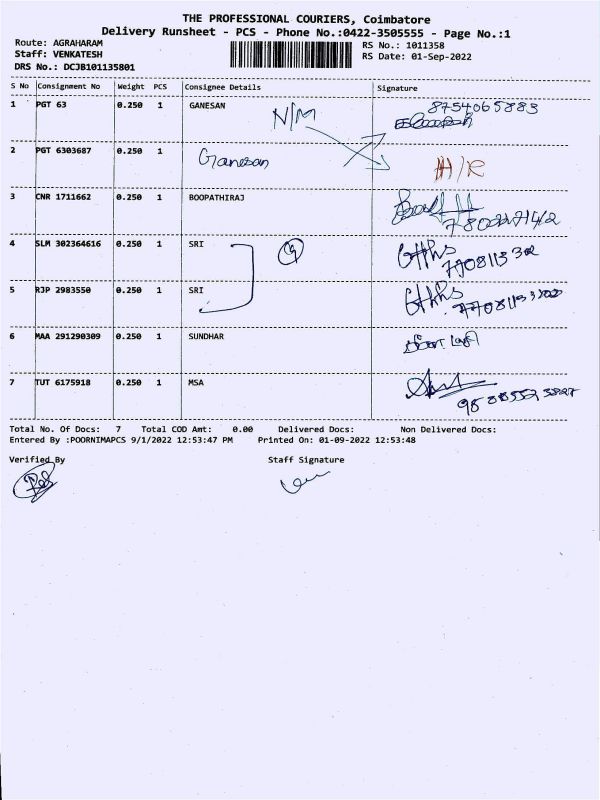 THE PROFESSIONAL COURIERS, Coimbatore
Delivery Runsheet - PCS - Phone No.:0422-3505555 - Page No.:1
Route: AGRAHARAM
Staff: VENKATESH
DRS No.: DCJB101135801
RS No.: 1011358
RS Date: 01-Sep-2022
S No Consignment No Weight PCS Consignee Details Signature
1 PGT 63 0.250 1 GANESAN N/M 8754065883
2 PGT 6303687 0.250 1 Ganesan H/R
3 CNR 1711662 0.250 1 BOOPATHIRAJ
4 SLM 302364616 0.250 1 SRI
5 RJP 2983550 0.250 1 SRI
6 MAA 291290309 0.250 1 SUNDHAR
7 TUT 6175918 0.250 1 MSA
Total No. Of Docs: 7 Total COD Amt: 0.00 Delivered Docs: Non Delivered Docs:
Entered By :POORNIMAPCS 9/1/2022 12:53:47 PM Printed On: 01-09-2022 12:53:48
Verified By Staff Signature